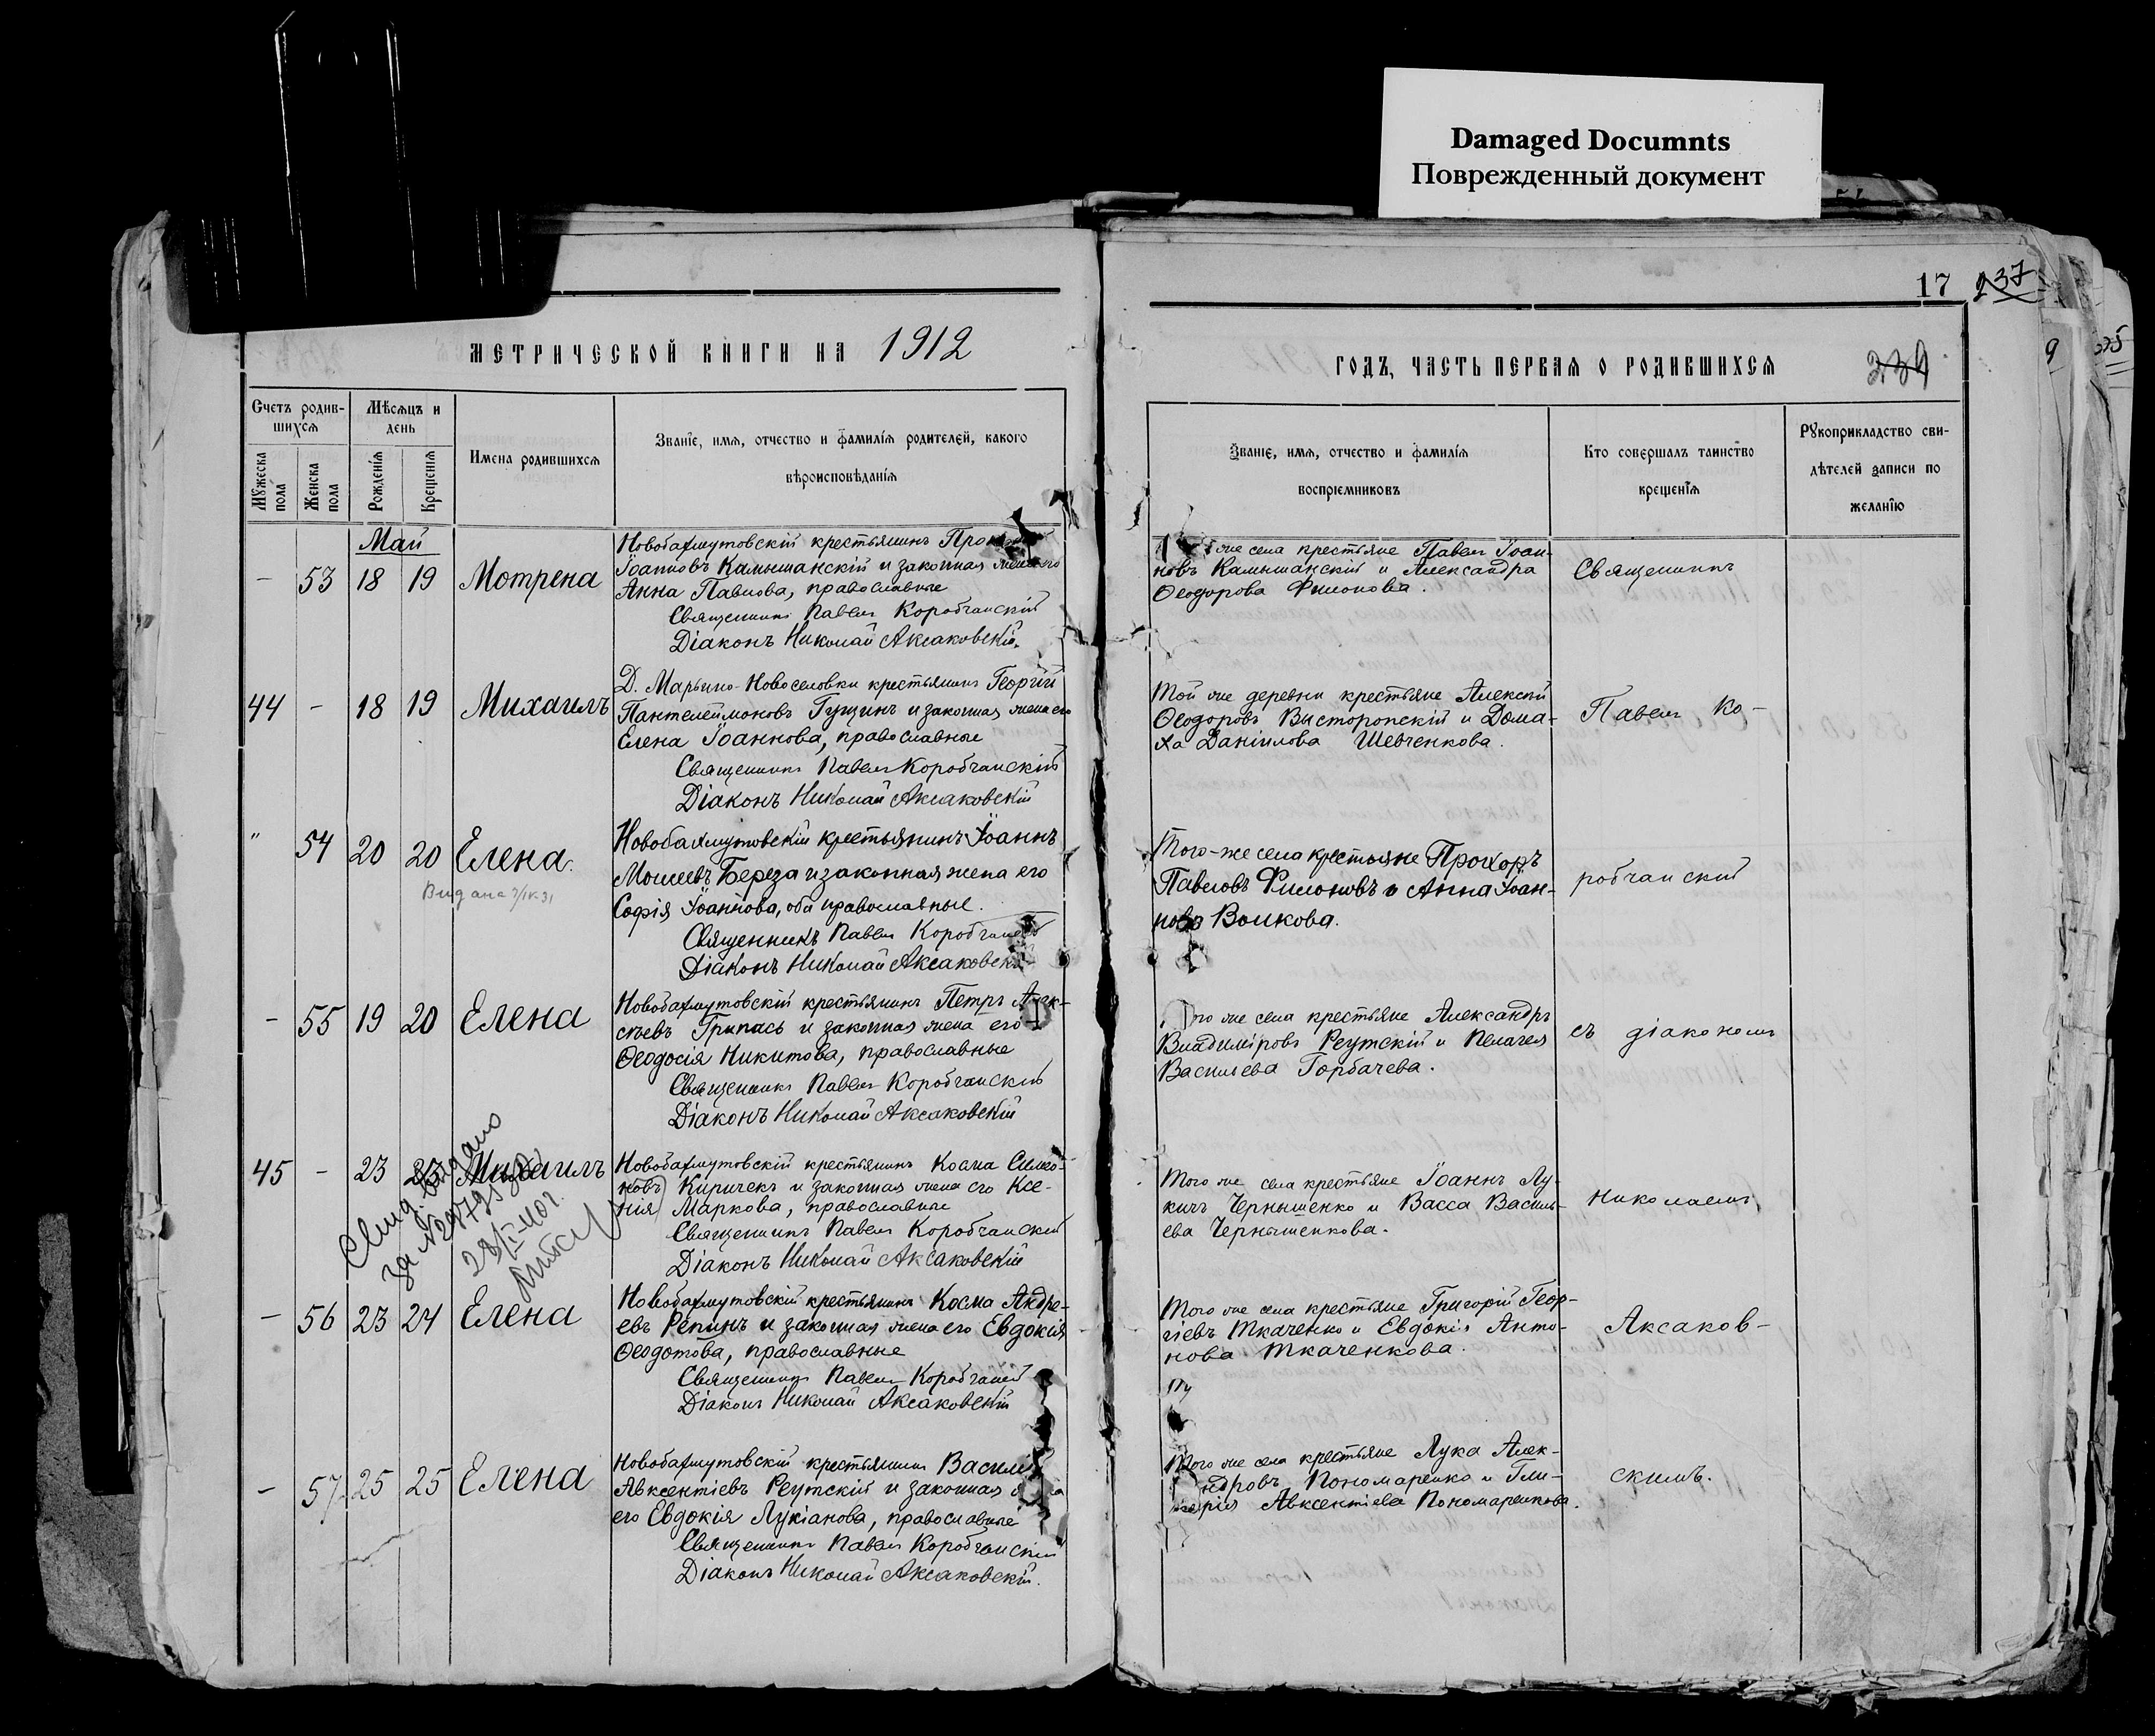 Damaged Documnts
Поврежденный документ
17 237
МЕТРИЧЕСКОЙ КНИГИ НА 1912
ГОДЪ, ЧАСТЬ ПЕРВАЯ О РОДИВШИХСЯ
239
Счетъ родив-
шихся
Мѣсяцъ и
день
Мужеска
пола
Женска
пола
Рожденія
Крещенія
Имена родившихся
Званіе, имя, отчество и фамилія родителей, какого
вѣроисповѣданія
Званіе, имя, отчество и фамилія
воспріемниковъ
Кто совершалъ таинство
крещенія
Рукоприкладство сви-
дѣтелей записи по
желанію
Май
– 53 18 19 Мотрена
Новобахмутовскій крестьянинъ
Іоанновъ Камышанскій и законная жена его
Анна Павлова, православные
Священникъ Павелъ Коробчанскій
Діаконъ Николай Аксаковскій.
же села крестьяне Павелъ Іоан-
новъ Камышанскій и Александра
Ѳеодорова Филонова.
Священникъ
44 – 18 19 Михаилъ
Д. Марьино-Новоселовки крестьянинъ Георгій
Пантелеймоновъ Гущинъ и законная жена его
Елена Іоаннова, православные
Священникъ Павелъ Коробчанскій
Діаконъ Николай Аксаковскій
Той же деревни крестьяне Алексѣй
Ѳеодоровъ Высторопскій и Дома-
ха Даніилова Шевченкова.
Павелъ Ко-
" 54 20 20 Елена.
Видана 3/IV-31
Новобахмутовскій крестьянинъ Іоаннъ
Моисеевъ Береза и законная жена его
Софія Іоаннова, оба православные.
Священникъ Павелъ
Діаконъ Николай Аксаковскій
Того-же села крестьяне Прохоръ
Павловъ Филоновъ и Анна Іоан-
нова Волкова.
робчанскій
– 55 19 20 Елена
Новобахмутовскій крестьянинъ Петръ Алек-
сѣевъ Грипась и законная жена его
Ѳеодосія Никитова, православные
Священникъ Павелъ Коробчанскій
Діаконъ Николай Аксаковскій
же села крестьяне Александръ
Владиміровъ Реутскій и Пелагея
Василіева Горбачева.
съ діакономъ
45 – 23 23 Михаилъ
за № 29779
Новобахмутовскій крестьянинъ Косма Симео-
новъ Киричекъ и законная жена его Ксе-
нія Маркова, православные
Священникъ Павелъ Коробчанскій
Діаконъ Николай Аксаковскій
Того же села крестьяне Іоаннъ Лу-
кичъ Чернышенко и Васса Василь-
ева Чернышенкова.
Николаемъ
– 56 23 24 Елена
Новобахмутовскій крестьянинъ Косма Андре-
евъ Репинъ и законная жена его Евдокія
Ѳеодотова, православные
Священникъ Павелъ
Діаконъ Николай Аксаковскій
Того же села крестьяне Григорій Геор-
гіевъ Ткаченко и Евдокія Анто-
нова Ткаченкова.
Аксаков-
– 57 25 25 Елена
Новобахмутовскій крестьянинъ Василій
Авксентіевъ Реутскій и законная
его Евдокія Лукіанова, православные
Священникъ Павелъ Коробчанскій
Діаконъ Николай Аксаковскій.
Того же села крестьяне Лука Алек-
Пономаренко и Гли-
керія Авксентіева Пономаренкова.
скимъ.